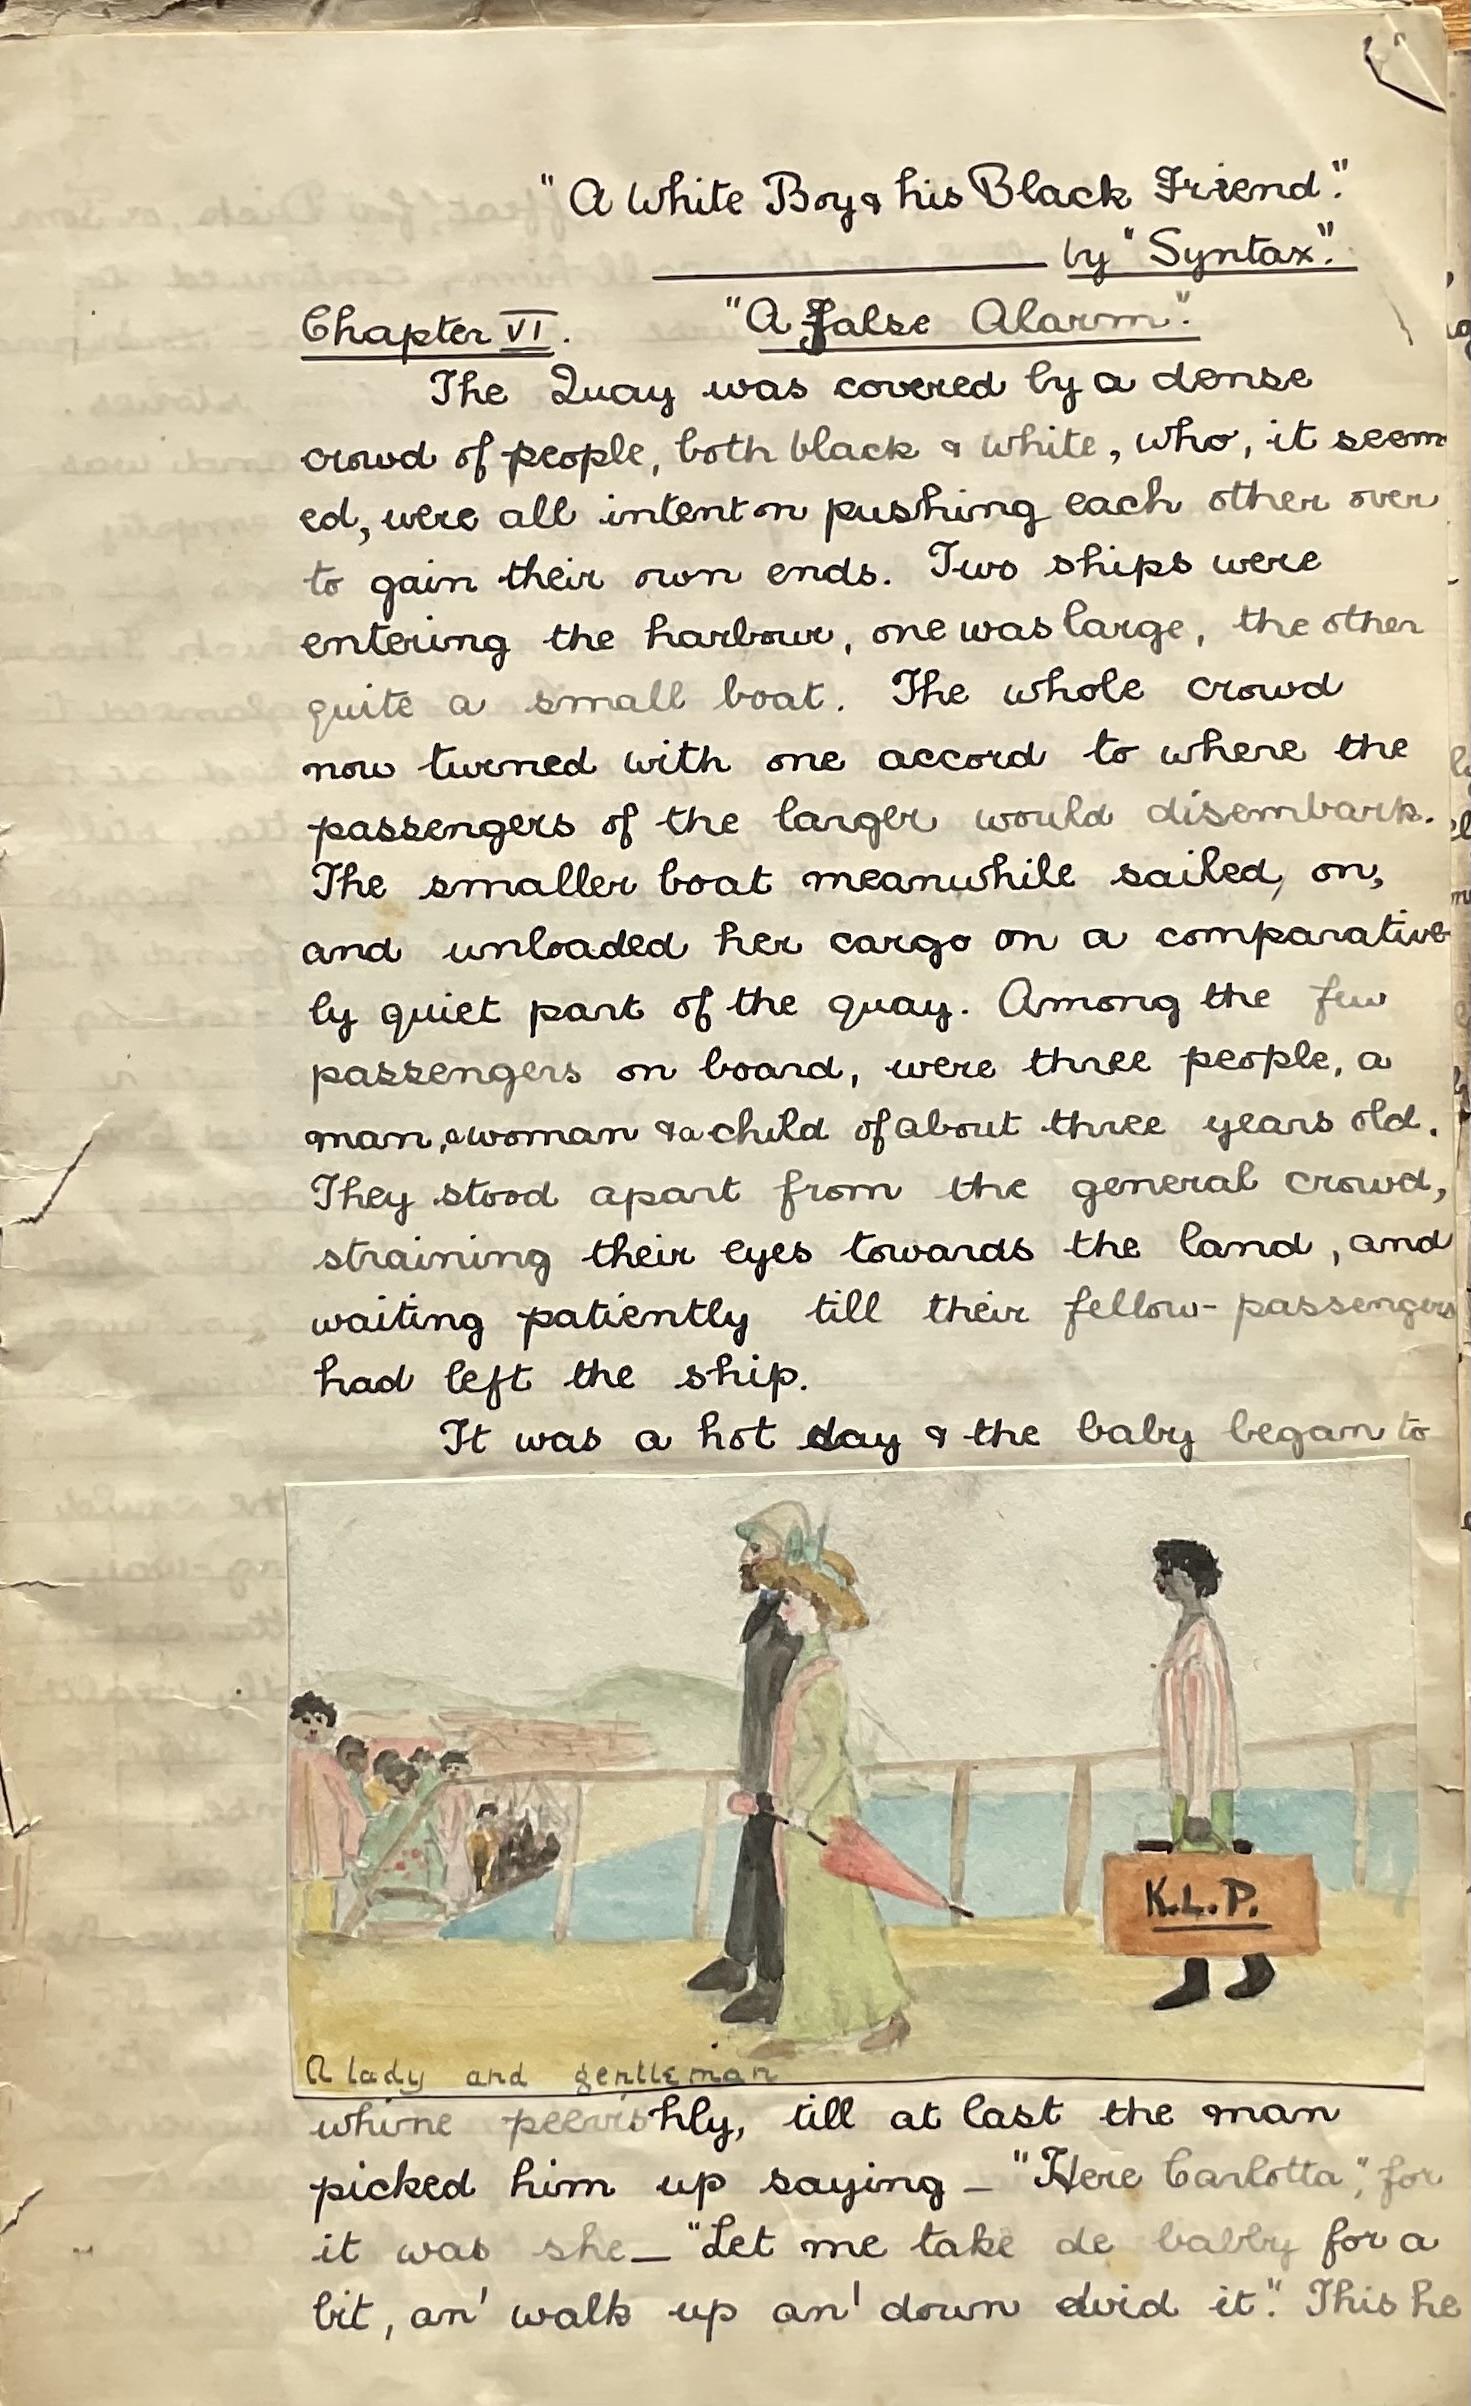 "A White Boy & his Black Friend".
by "Syntax".
Chapter VI. "A False Alarm".
The Quay was covered by a dense
crowd of people, both black & white, who, it seem
ed, were all intent on pushing each other over
to gain their own ends. Two ships were
entering the harbour, one was large, the other
quite a small boat. The whole crowd
now turned with one accord to where the
passengers of the larger would disembark.
The smaller boat meanwhile sailed, on,
and unloaded her cargo on a comparative
ly quiet part of the quay. Among the few
passengers on board, were three people, a
man, a woman & a child of about three years old.
They stood apart from the general crowd,
straining their eyes towards the land, and
waiting patiently till their fellow-passengers
had left the ship.
It was a hot day & the baby began to
K.L.P.
A lady and gentleman
whine peevishly, till at last the man
picked him up saying — "Here Carlotta", for
it was she — "Let me take de babby for a
bit, an' walk up an' down dvid it." This he